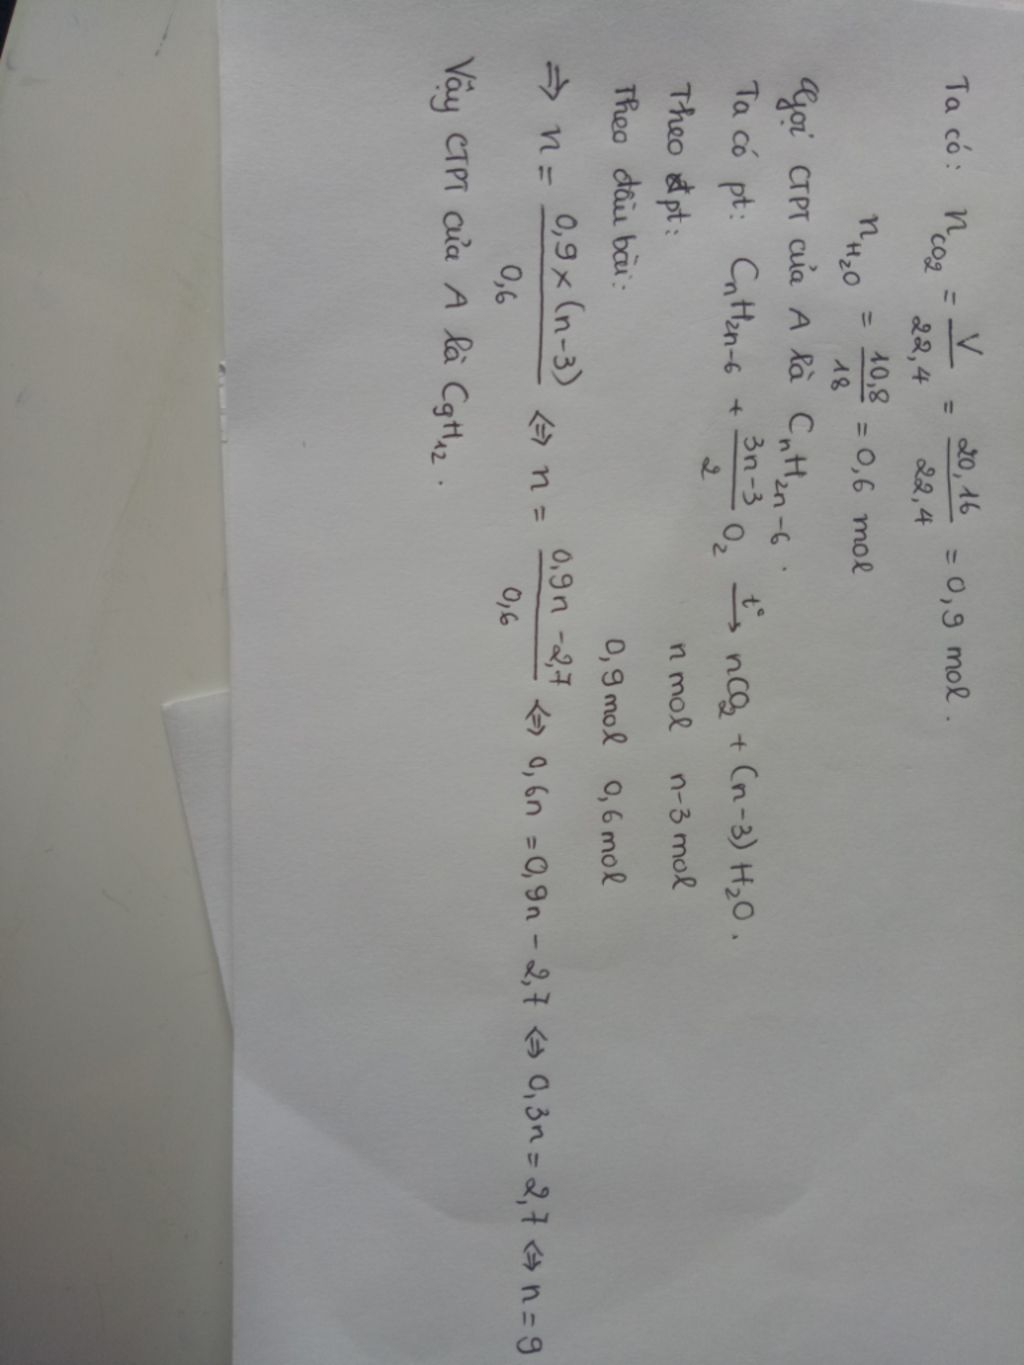 Ta có: n_CO2 = V/22,4 = 20,16/22,4 = 0,9 mol.
n_H2O = 10,8/18 = 0,6 mol
Gọi CTPT của A là CnH2n-6.
Ta có pt: CnH2n-6 + (3n-3)/2 O2 →(t°) nCO2 + (n-3) H2O.
Theo pt: n mol n-3 mol
Theo đầu bài: 0,9 mol 0,6 mol
⇒ n = 0,9 × (n-3)/0,6 ⇔ n = (0,9n - 2,7)/0,6 ⇔ 0,6n = 0,9n - 2,7 ⇔ 0,3n = 2,7 ⇔ n = 9
Vậy CTPT của A là C9H12.